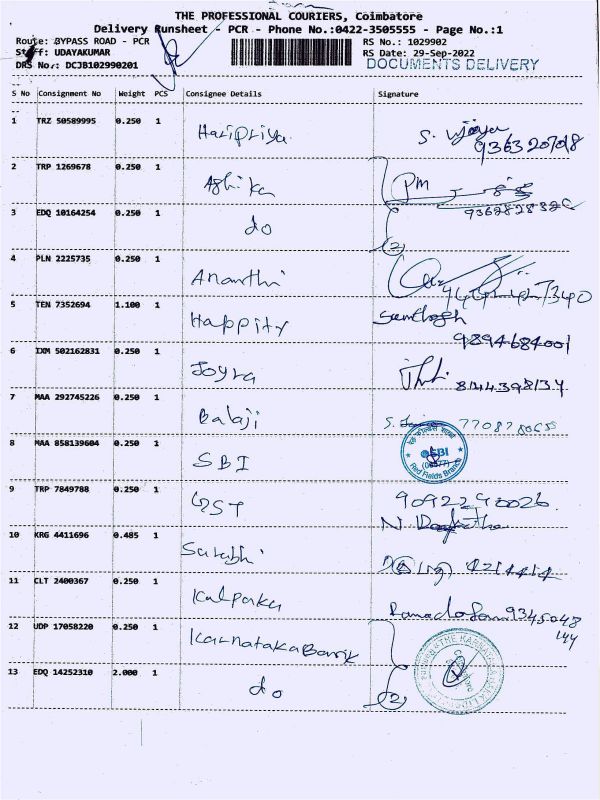 THE PROFESSIONAL COURIERS, Coimbatore
Delivery Runsheet - PCR - Phone No.:0422-3505555 - Page No.:1
Route: BYPASS ROAD - PCR RS No.: 1029902
Staff: UDAYAKUMAR RS Date: 29-Sep-2022
DRS No.: DCJB102990201 DOCUMENTS DELIVERY
S No Consignment No Weight PCS Consignee Details Signature
1 TRZ 50589995 0.250 1 Haripriya
2 TRP 1269678 0.250 1 PM
3 EDQ 10164254 0.250 1 do
(2)
4 PLN 2225735 0.250 1 Ananthi
5 TEN 7352694 1.100 1 Happity Santhosh
9894684001
6 IXM 502162831 0.250 1 8144398134
7 MAA 292745226 0.250 1 Balaji
8 MAA 858139604 0.250 1 SBI
SBI
Red Fields Branch
9 TRP 7849788 0.250 1 GST 9092290026
N
10 KRG 4411696 0.485 1 Surabhi
11 CLT 2400367 0.250 1 9345048
144
12 UDP 17058220 0.250 1 Karnataka Bank
THE KARNATAKA
13 EDQ 14252310 2.000 1 do (2)